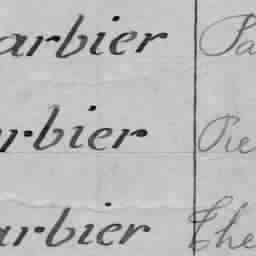 arbier Pa
rbier Pie
arbier The